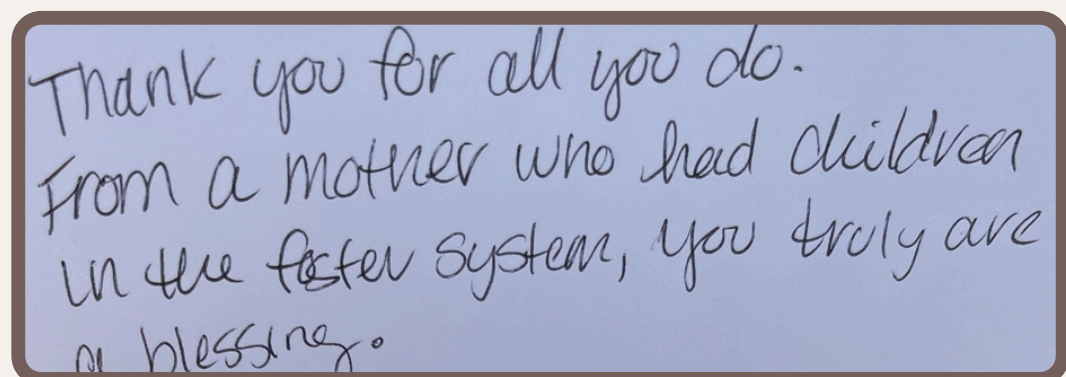 Thank you for all you do.
From a mother who had children
in the foster system, you truly are
a blessing.